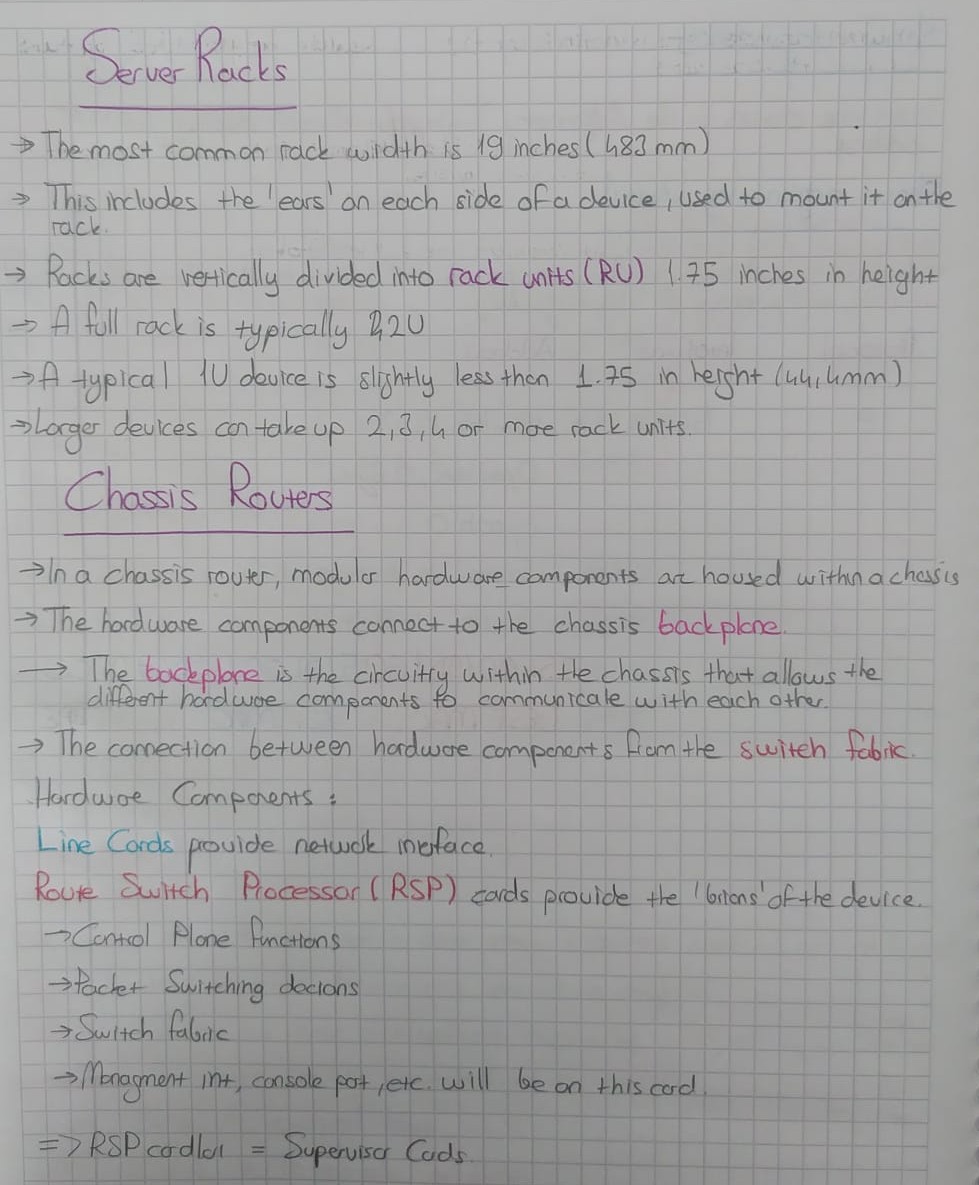 Server Racks
→ The most common rack width is 19 inches (483 mm)
→ This includes the 'ears' on each side of a device, used to mount it on the
rack.
→ Racks are vertically divided into rack units (RU) 1.75 inches in height
→ A full rack is typically 42U
→ A typical 1U device is slightly less than 1.75 in height (44,4mm)
→ Larger devices can take up 2,3,4 or more rack units.
Chassis Routers
→ In a chassis router, modular hardware components are housed within a chassis
→ The hardware components connect to the chassis backplane.
→ The backplane is the circuitry within the chassis that allows the
different hardware components to communicate with each other.
→ The connection between hardware components from the switch fabric.
Hardware Components :
Line Cards provide network inerface.
Route Switch Processor (RSP) cards provide the 'brians' of the device.
→ Control Plane functions
→ Packet Switching decions
→ Switch fabric
→ Managment int, console port, etc. will be on this card.
=> RSP cardları = Supervisor Cards